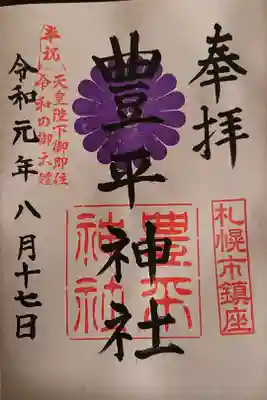 奉拝
札幌市鎮座
豊平神社
豊平
神社
奉祝 天皇陛下御即位
令和の御大禮
令和元年八月十七日